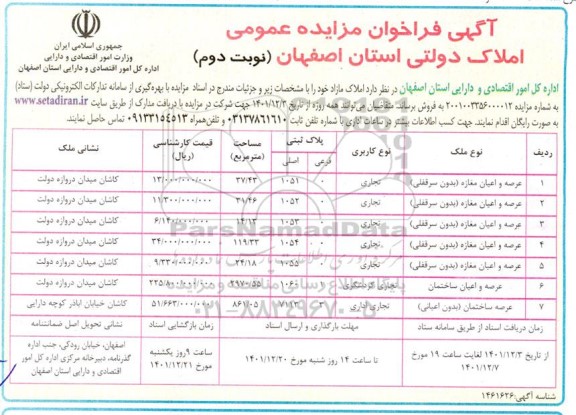 آگهی فراخوان مزایده عمومی
املاک دولتی استان اصفهان (نوبت دوم)
جمهوری اسلامی ایران
وزارت امور اقتصادی و دارایی
اداره کل امور اقتصادی و دارایی استان اصفهان
اداره کل امور اقتصادی و دارایی استان اصفهان در نظر دارد املاک مازاد خود را با مشخصات زیر و جزئیات مندرج در اسناد مزایده با بهره‌گیری از سامانه تدارکات الکترونیکی دولت (ستاد)
به شماره مزایده ۲۰۰۱۰۰۳۳۵۶۰۰۰۰۱۲ به فروش برساند. متقاضیان می‌توانند همه روزه از تاریخ ۱۴۰۱/۱۲/۳ جهت شرکت در مزایده با دریافت مدارک از طریق سایت www.setadiran.ir
به صورت رایگان اقدام نمایند. جهت کسب اطلاعات بیشتر در ساعات اداری با شماره تلفن ثابت ۰۳۱۳۷۸۶۱۶۱۰ و تلفن همراه ۰۹۱۳۳۱۵۴۵۱۳ تماس حاصل نمایند.
ردیف نوع ملک نوع کاربری پلاک ثبتی فرعی اصلی مساحت (مترمربع) قیمت کارشناسی (ریال) نشانی ملک
۱ عرصه و اعیان مغازه (بدون سرقفلی) تجاری ۰ ۱۰۵۱ ۳۷/۴۳ ۱۳/۰۰۰/۰۰۰/۰۰۰ کاشان میدان دروازه دولت
۲ عرصه و اعیان مغازه (بدون سرقفلی) تجاری ۰ ۱۰۵۲ ۳۱/۴۶ ۱۱/۳۰۰/۰۰۰/۰۰۰ کاشان میدان دروازه دولت
۳ عرصه و اعیان مغازه (بدون سرقفلی) تجاری ۰ ۱۰۵۳ ۱۴/۱۳ ۶/۱۴۰/۰۰۰/۰۰۰ کاشان میدان دروازه دولت
۴ عرصه و اعیان مغازه (بدون سرقفلی) تجاری ۰ ۱۰۵۴ ۱۱۹/۳۳ ۳۴/۰۰۰/۰۰۰/۰۰۰ کاشان میدان دروازه دولت
۵ عرصه و اعیان مغازه (بدون سرقفلی) تجاری ۰ ۱۰۵۵ ۲۴/۱۸ ۹/۳۳۰/۰۰۰/۰۰۰ کاشان میدان دروازه دولت
۶ عرصه و اعیان ساختمان تجاری گردشگری ۱۰۶۰ ۲۹۷۰/۵۵ ۲۳۵/۸۰۰/۰۰۰/۰۰۰ کاشان میدان دروازه دولت
۷ عرصه ساختمان (بدون اعیانی) تجاری اداری ۳ ۷۱۱۳ ۸۶۱/۰۵ ۵۱/۶۶۳/۰۰۰/۰۰۰ کاشان خیابان اباذر کوچه دارایی
زمان دریافت اسناد از طریق سامانه ستاد مهلت بارگذاری و ارسال اسناد زمان بازگشایی اسناد نشانی تحویل اصل ضمانتنامه
از تاریخ ۱۴۰۱/۱۲/۳ لغایت ساعت ۱۹ مورخ ۱۴۰۱/۱۲/۷
تا ساعت ۱۴ روز شنبه مورخ ۱۴۰۱/۱۲/۲۰
ساعت ۹ روز یکشنبه مورخ ۱۴۰۱/۱۲/۲۱
اصفهان، خیابان رودکی، جنب اداره گذرنامه، دبیرخانه مرکزی اداره کل امور اقتصادی و دارایی استان اصفهان
شناسه آگهی: ۱۴۶۱۶۲۶
ParsNamadData
۰۲۱-۸۸۳۴۹۶۷۰-۵